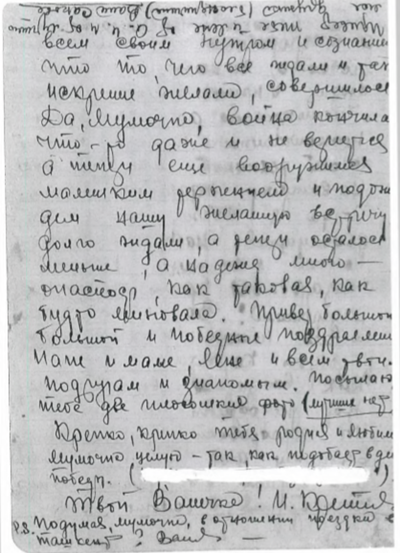 всем своим нутром и сознани
что то, чего все ждали и так
искренне желали, совершилось
Да, Мумочка, война кончила
что-то даже и не верится
а теперь еще вооружимся
маленьким терпением и подож
дем нашу желанную встречу
долго ждали, а теперь осталось
меньше, а надежд много —
опасность, как таковая, как
будто миновала. Привет большой
большой и победные поздравлени
папе и маме, Лене и всем твоим
подругам и знакомым. Посылаю
тебе две плохоньких фото (лучше нет
Крепко, крепко тебя родная и любим
мумочка целую — так, как подобает в де
победы. ( )
Твой Ванечка!
P.S. Подумай, мумочка, в отношении поездки в
Ташкент? Ваня —